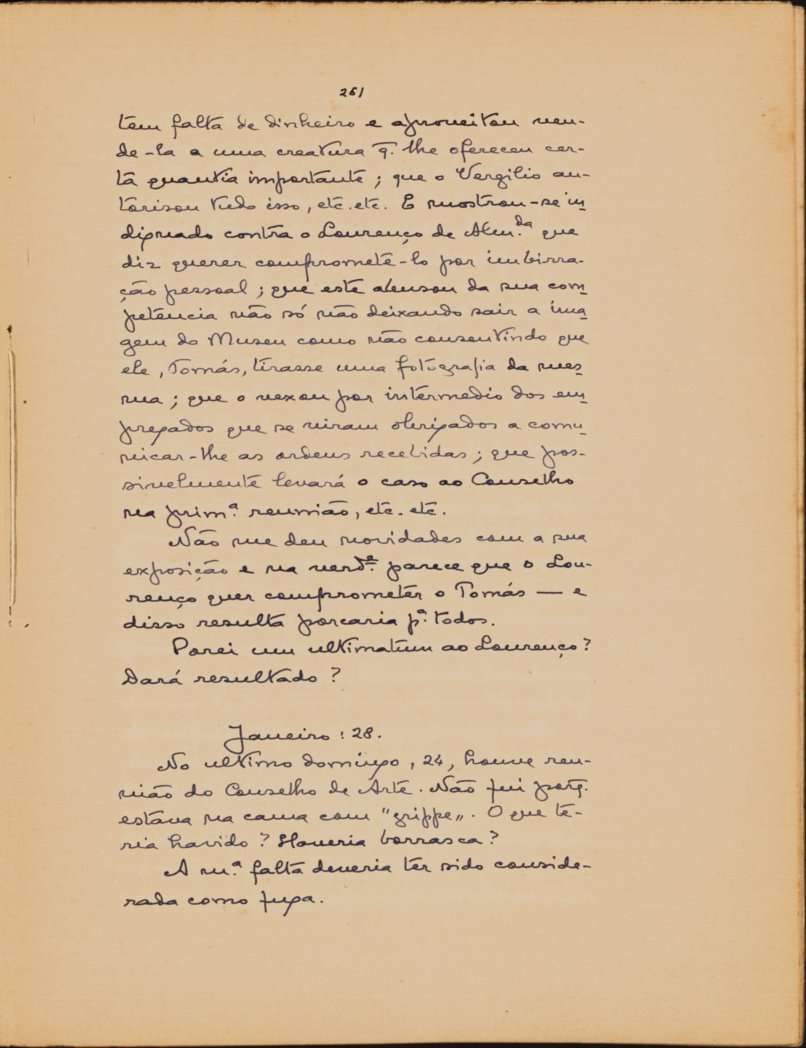 261
tem falta de dinheiro e aproveitou ven-
de-la a uma creatura q. lhe ofereceu cer-
ta quantia importante; que o Vergilio au-
torisou tudo isso, etc. etc. E mostrou-se in-
dignado contra o Lourenço de Alm.da que
diz querer comprometê-lo por embirra-
ção pessoal; que este abusou da sua com-
petencia não só não deixando sair a ima-
gem do Museu como não consentindo que
ele, Tomás, tirasse uma fotografia da mes-
ma; que o vexou por intermedio dos em-
pregados que se viram obrigados a comu-
nicar-lhe as ordens recebidas; que pos-
sivelmente levará o caso ao Conselho
na prim.a reunião, etc. etc.
Não me deu novidades com a sua
exposição e na verd.e parece que o Lou-
renço quer comprometer o Tomás — e
disso resulta porcaria p.a todos.
Porei um ultimatum ao Lourenço?
Dará resultado?
Janeiro: 28.
No ultimo domingo, 24, houve reu-
nião do Conselho de Arte. Não fui porq.
estava na cama com "grippe". O que te-
ria havido? Haveria borrasca?
A m.a falta deveria ter sido conside-
rada como fuga.